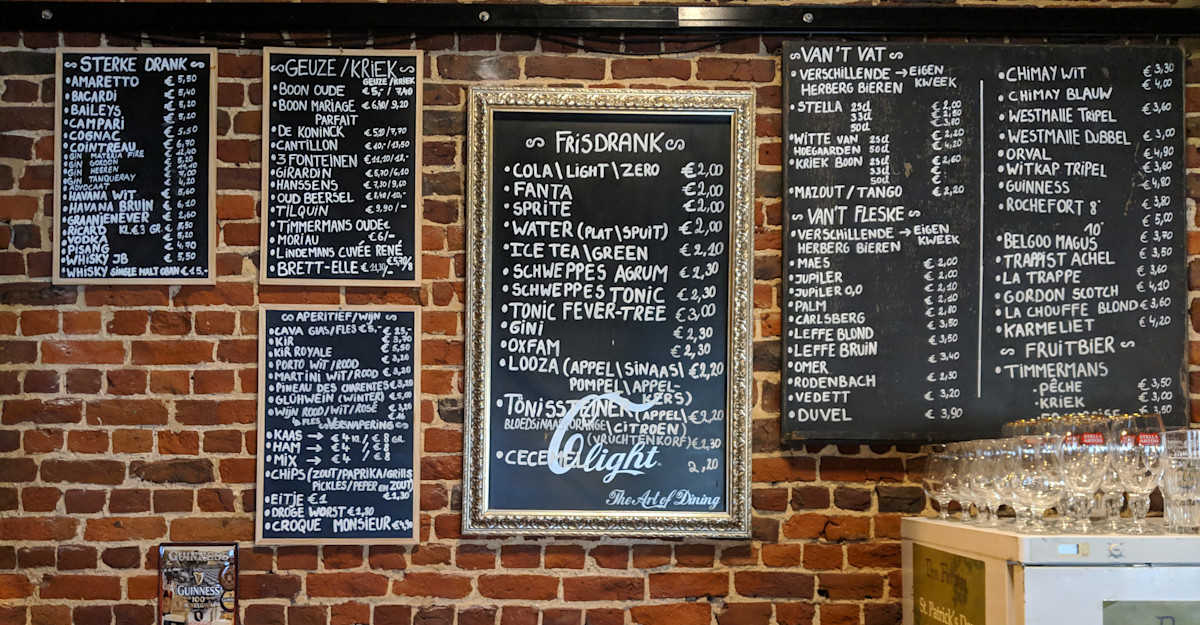 STERKE DRANK
AMARETTO € 5,50
BACARDI € 5,40
BAILEYS € 5,20
CAMPARI € 5,20
COGNAC € 5.50
COINTREAU
GIN GORDON
GIN HEEREN
GIN TANQUERAY
ADVOCAAT
HAVANA WIT
HAVANA BRUIN
GRAANJENEVER
RICARD KL €3 GR
VODKA
PISANG € 4,70
WHISKY JB € 5,50
WHISKY SINGLE MALT OBAN € 15,-
GEUZE/KRIEK
GEUZE/KRIEK
BOON OUDE € 5,-/7,40
BOON MARIAGE € 6,10/9,20
PARFAIT
DE KONINCK € 5,10/7,70
CANTILLON € 10,-/13,50
3 FONTEINEN € 11,10/12,-
GIRARDIN € 5,70/6,10
HANSSENS € 7,30/9,60
OUD BEERSEL € 8,40/10,-
TILQUIN € 9,90/-
TIMMERMANS OUDE
MORIAU € 6/-
LINDEMANS CUVÉE RENÉ
BRETT-ELLE € 11,30
APERITIEF/WIJN
CAVA GLAS/FLES € 5,- € 25,-
KIR € 3,70
KIR ROYALE € 5,50
PORTO WIT/ROOD € 3,20
MARTINI WIT/ROOD € 3,20
PINEAU DES CHARENTES € 3,20
GLÜHWEIN (WINTER) € 3,50
WIJN ROOD/WIT/ROSÉ € 3,20
½ FLES € 16
VERSNAPERING
KAAS → € 4 KL/€ 8 GR
HAM → € 4/€ 8
MIX → € 4/€ 8
CHIPS (ZOUT/PAPRIKA/GRILLS
PICKLES/PEPER EN ZOUT)
€ 1,30
EITJE € 1
DROGE WORST € 1,80
CROQUE MONSIEUR
FRISDRANK
COLA\LIGHT\ZERO € 2,00
FANTA € 2,00
SPRITE € 2,00
WATER (PLAT\SPUIT) € 2,00
ICE TEA\GREEN € 2,10
SCHWEPPES AGRUM € 2,30
SCHWEPPES TONIC € 2,30
TONIC FEVER-TREE € 3,00
GINI € 2,30
OXFAM € 2,30
LOOZA (APPEL\SINAAS\ € 2,20
POMPEL\APPEL-
KERS)
TÖNISSTEINER (APPEL\ € 2,20
BLOEDSINAAS\ORANGE \CITROEN)
(VRUCHTENKORF) € 2,30
CECEMEL 2,20
Co light
The Art of Dining
VAN'T VAT
VERSCHILLENDE → EIGEN
HERBERG BIEREN KWEEK
STELLA 25cl € 2,00
33cl € 2,50
50cl € 3,80
WITTE VAN 25cl € 2,20
HOEGAARDEN 50cl € 4,20
KRIEK BOON 25cl € 2,60
33cl €
50cl €
MAZOUT/TANGO € 2,20
VAN'T FLESKE
VERSCHILLENDE → EIGEN
HERBERG BIEREN KWEEK
MAES € 2,00
JUPILER € 2,00
JUPILER 0,0 € 2,10
PALM € 2,10
CARLSBERG
LEFFE BLOND € 3,50
LEFFE BRUIN
OMER € 3,40
RODENBACH € 2,30
VEDETT € 3,20
DUVEL € 3,90
CHIMAY WIT € 3,30
CHIMAY BLAUW € 4,00
WESTMALLE TRIPEL € 3,60
WESTMALLE DUBBEL € 3,00
ORVAL € 4,90
WITKAP TRIPEL € 3,60
GUINNESS € 4,80
ROCHEFORT 8° € 3,80
10° € 5,00
BELGOO MAGUS € 3,70
TRAPPIST ACHEL € 3,50
LA TRAPPE € 3,60
GORDON SCOTCH € 4,10
LA CHOUFFE BLOND € 3,60
KARMELIET € 4,20
FRUITBIER
TIMMERMANS
PÊCHE € 3,50
KRIEK € 3,50
€ 3,50
STELLA ARTOIS
STELLA ARTOIS
GUINNESS
GUINNESS
100
St. Patrick's Day